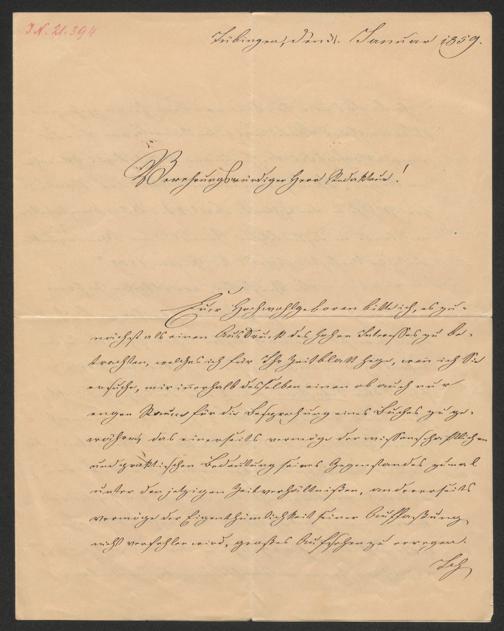 J.N. 21.394
Tübingen, den 1. Januar 1859.
Verehrungswürdiger Herr Redakteur!
Euer Hochwohlgeboren bitte ich, es zu-
nächst als einen Ausdruck des hohen Interesses zu be-
trachten, welches ich für Ihr Zeitblatt hege, wenn ich Sie
ersuche, mir innerhalb desselben einen ob auch nur
engen Raum für die Besprechung eines Buches zu ge-
währen, das einerseits vermöge der wissenschaftlichen
und praktischen Bedeutung seines Gegenstandes zumal
unter den jetzigen Zeitverhältnißen, andererseits
vermöge der Eigenthümlichkeit seiner Auffaßung
nicht verfehlen wird, großes Aufsehen zu erregen.
Ich